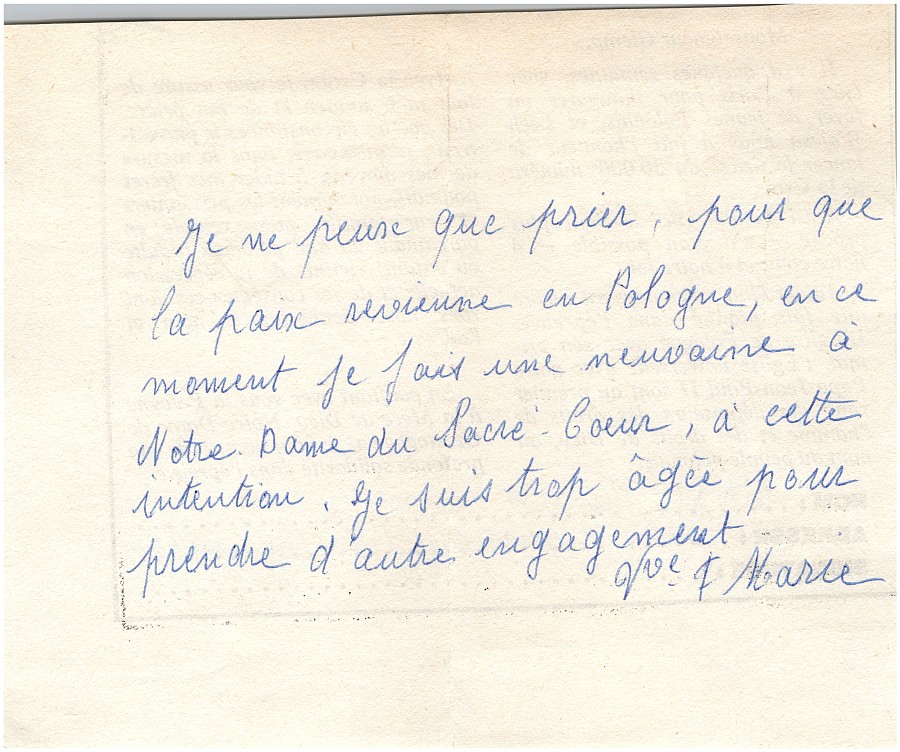 Je ne peux que prier, pour que
la paix revienne en Pologne, en ce
moment je fais une neuvaine à
Notre-Dame du Sacré-Coeur, à cette
intention. Je suis trop âgée pour
prendre d'autre engagement
Vve F Marie